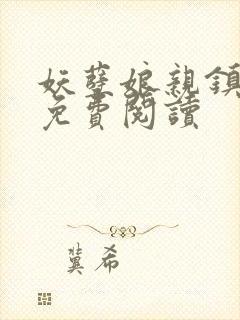 妖孽娘親鎮
免費閱讀
冀希